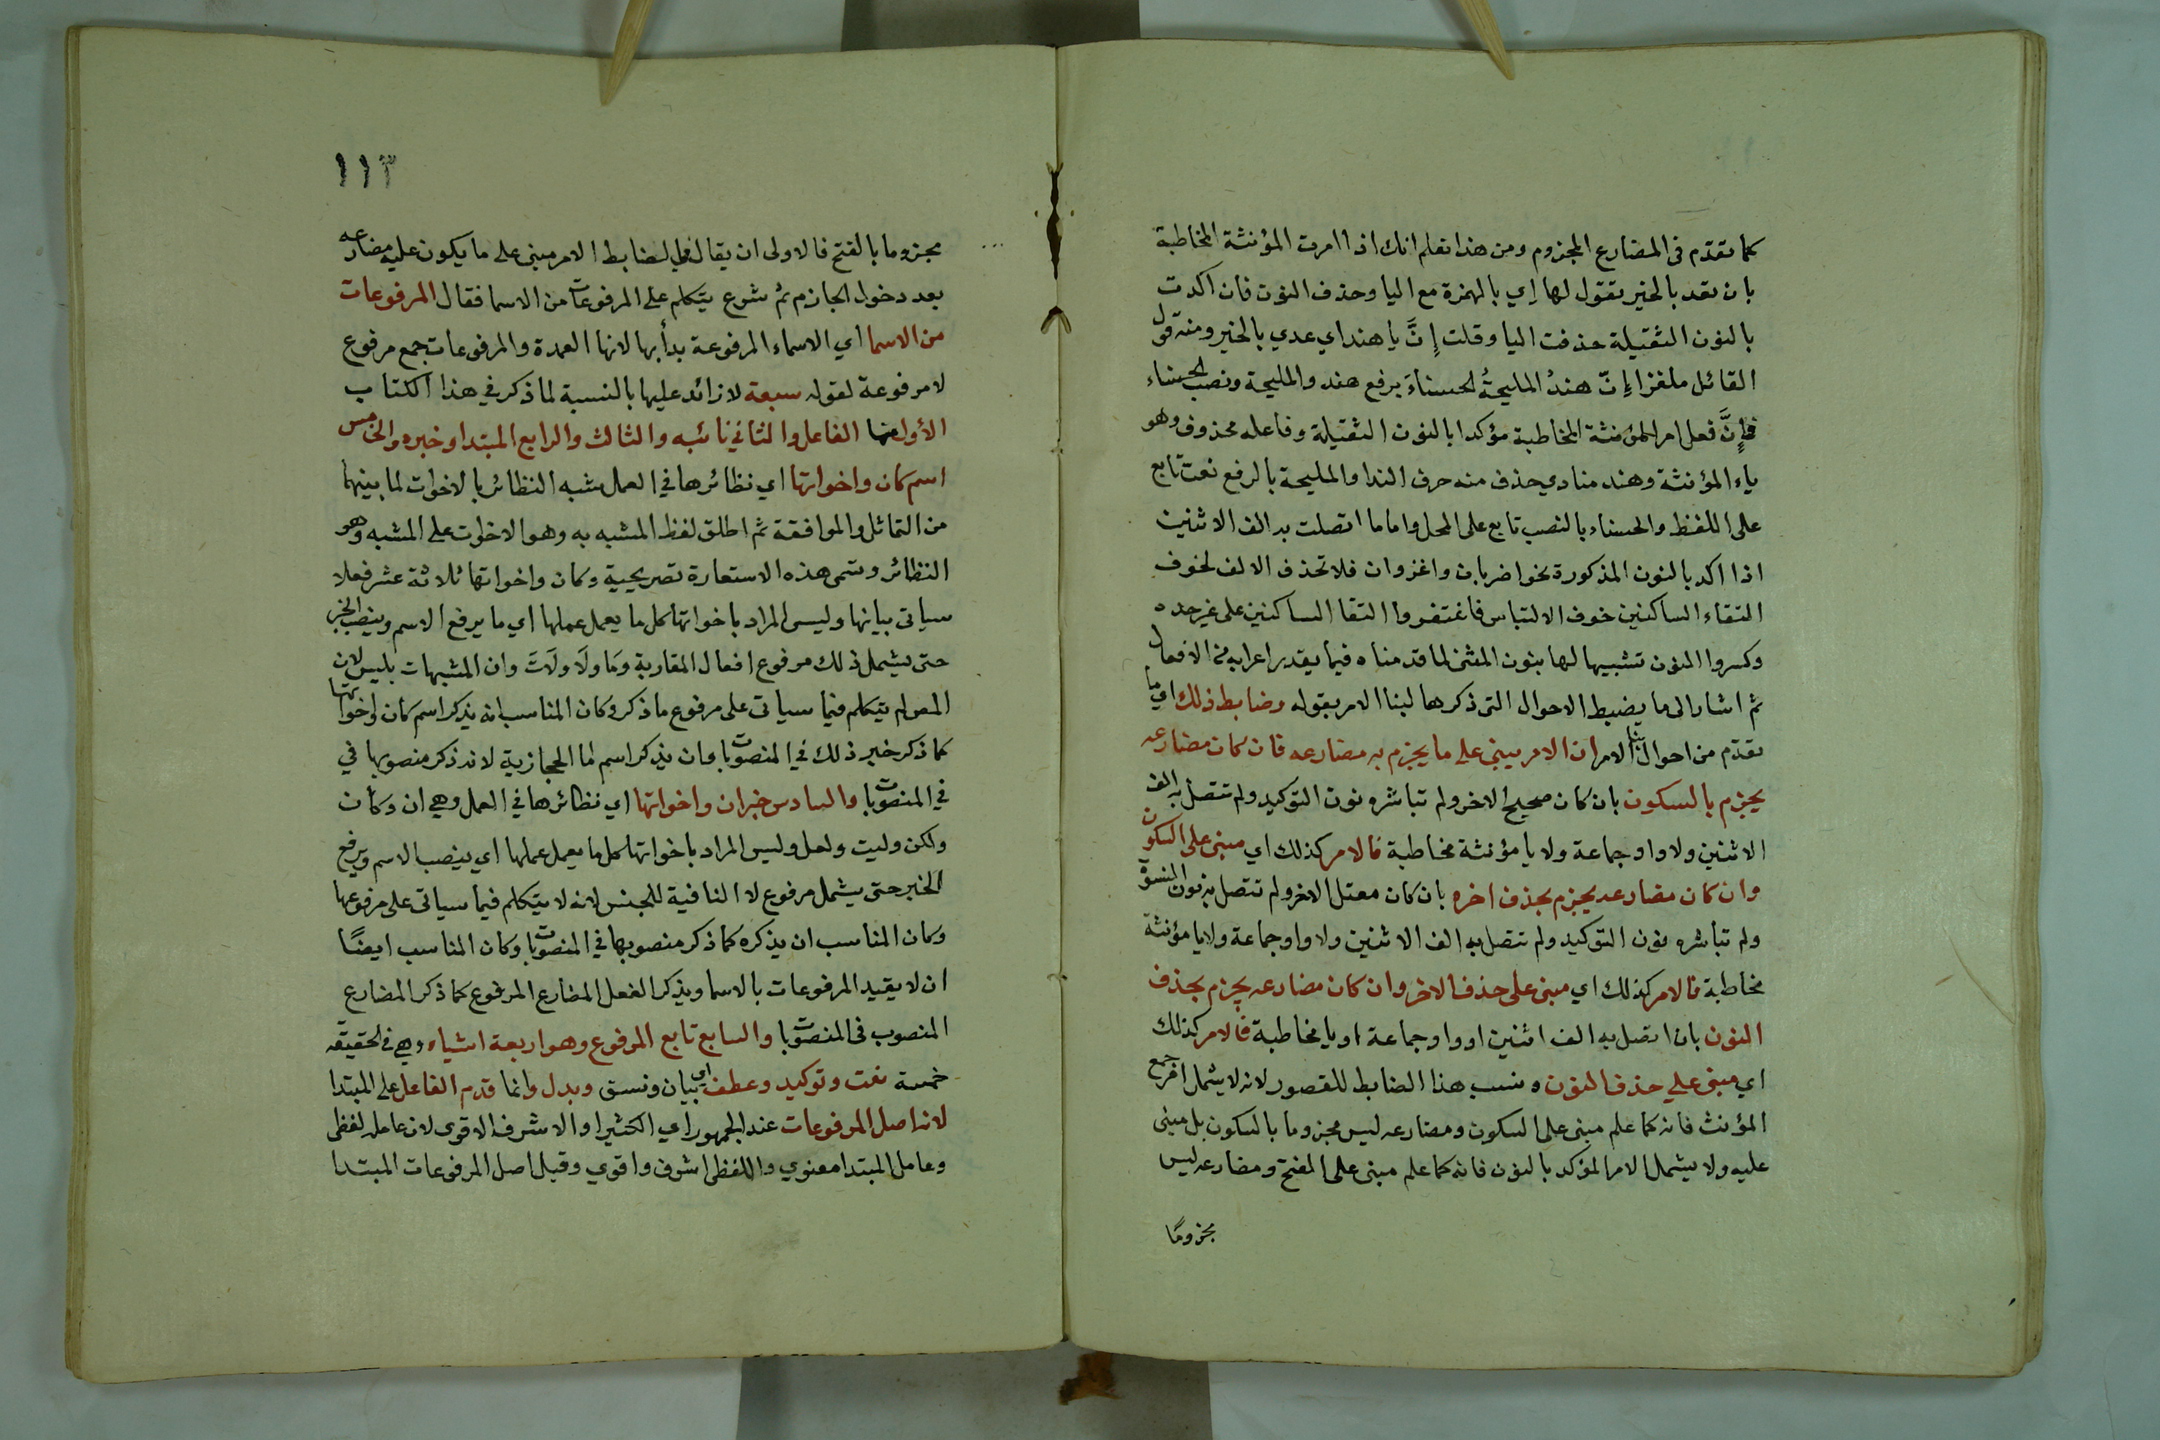 كما تقدم في المضارع المجزوم ومن هذا تعلم انك اذا امرت المؤنثة المخاطبة
بان تعد بالخير تقول لها إي بالهمزة مع اليا وحذف النون فان اكدت
بالنون الثقيلة حذفت اليا وقلت إنَّ يا هند اي عدي بالخير ومنه قول
القائل ملغزا إنّ هندُ المليحةُ الحسناءَ برفع هند والمليحة ونصب الحسناء
فإنَّ فعل امر للمؤنثة المخاطبة مؤكدا بالنون الثقيلة وفاعله محذوف وهو
ياء المؤنثة وهند منادى حذف منه حرف الندا والمليحة بالرفع نعت تابع
على اللفظ والحسناء بالنصب تابع على المحل واما ما اتصلت به الف الاثنين
اذا اكد بالنون المذكورة نحو اضربان واغزوان فلا تحذف الالف لخوف
التقاء الساكنين خوف الالتباس فاغتفروا التقا الساكنين على غير حده
وكسروا النون تشبيها لها بنون المثنى لما قدمناه فيما يقدر اعرابه من الافعال
ثم اشار الى ما يضبط الاحوال التي ذكرها لبنا الامر بقوله وضابط ذلك اي ما
تقدم من احوال بنا الامر ان الامر يبنى على ما يجزم به مضارعه فان كان مضارعه
يجزم بالسكون بان كان صحيح الاخر ولم تباشره نون التوكيد ولم تتصل به الف
الاثنين ولا واو جماعة ولا يا مؤنثة مخاطبة فالامر كذلك اي مبني على السكون
وان كان مضارعه يجزم بحذف اخره بان كان معتل الاخر ولم تتصل به نون النسوة
ولم تباشره نون التوكيد ولم تتصل به الف الاثنين ولا واو جماعة ولا يا مؤنثة
مخاطبة فالامر كذلك اي مبني على حذف الاخر وان كان مضارعه يجزم بحذف
النون بان اتصل به الف اثنين او واو جماعة او يا مخاطبة فالامر كذلك
اي مبني على حذف النون ونسب هذا الضابط للقصور لانه لا يشمل امر جمع
المؤنث فانه كما علم مبني على السكون ومضارعه ليس مجزوما بالسكون بل مبني
عليه ولا يشمل الامر المؤكد بالنون فانه كما علم مبني على الفتح ومضارعه ليس
مجزومًا
١١٣
مجزوما بالفتح فالاولى ان يقال في الضابط الامر مبني على ما يكون عليه مضارعه
بعد دخول الجازم ثم شرع يتكلم على المرفوعات من الاسما فقال المرفوعات
من الاسما اي الاسماء المرفوعة بدأ بها لانها العمدة والمرفوعات جمع مرفوع
لا مرفوعة لقوله سبعة لا زائد عليها بالنسبة لما ذكر في هذا الكتاب
الأول منها الفاعل والثاني نائبه والثالث والرابع المبتدا وخبره والخامس
اسم كان واخواتها اي نظائرها في العمل شبه النظائر بالاخوات لما بينهما
من التماثل والموافقة ثم اطلق لفظ المشبه به وهو الاخوات على المشبه وهو
النظائر وتسمى هذه الاستعارة تصريحية وكان واخواتها ثلاثة عشر فعلا
سياتي بيانها وليس المراد باخواتها كل ما يعمل عملها اي ما يرفع الاسم وينصب الخبر
حتى يشمل ذلك مرفوع افعال المقاربة ومَا ولَا ولَاتَ وان المشبهات بليس لان
المص لم يتكلم فيما سياتي على مرفوع ما ذكر وكان المناسب انه يذكر اسم كان واخواتها
كما ذكر خبر ذلك في المنصوبات وان يذكر اسم لما الحجازية لانه ذكر منصوبها في
في المنصوبات والسادس خبر ان واخواتها اي نظائرها في العمل وهي ان وكأن
ولكن وليت ولعل وليس المراد باخواتها كل ما يعمل عملها اي ينصب الاسم ويرفع
الخبر حتى يشمل مرفوع لا النافية للجنس لانه لا يتكلم فيما سياتي على مرفوعها
وكان المناسب ان يذكره كما ذكر منصوبها في المنصوبات وكان المناسب ايضًا
ان لا يقيد المرفوعات بالاسما ويذكر الفعل المضارع المرفوع كما ذكر المضارع
المنصوب في المنصوبات والسابع تابع المرفوع وهو اربعة اشياء وهي في الحقيقة
خمسة نعت وتوكيد وعطف اي بيان ونسق وبدل وانما قدم الفاعل على المبتدا
لانه اصل المرفوعات عند الجمهور اي الكثير او الاشرف الاقوى لان عامله لفظي
وعامل المبتدا معنوي واللفظي اشرف واقوي وقيل اصل المرفوعات المبتدا